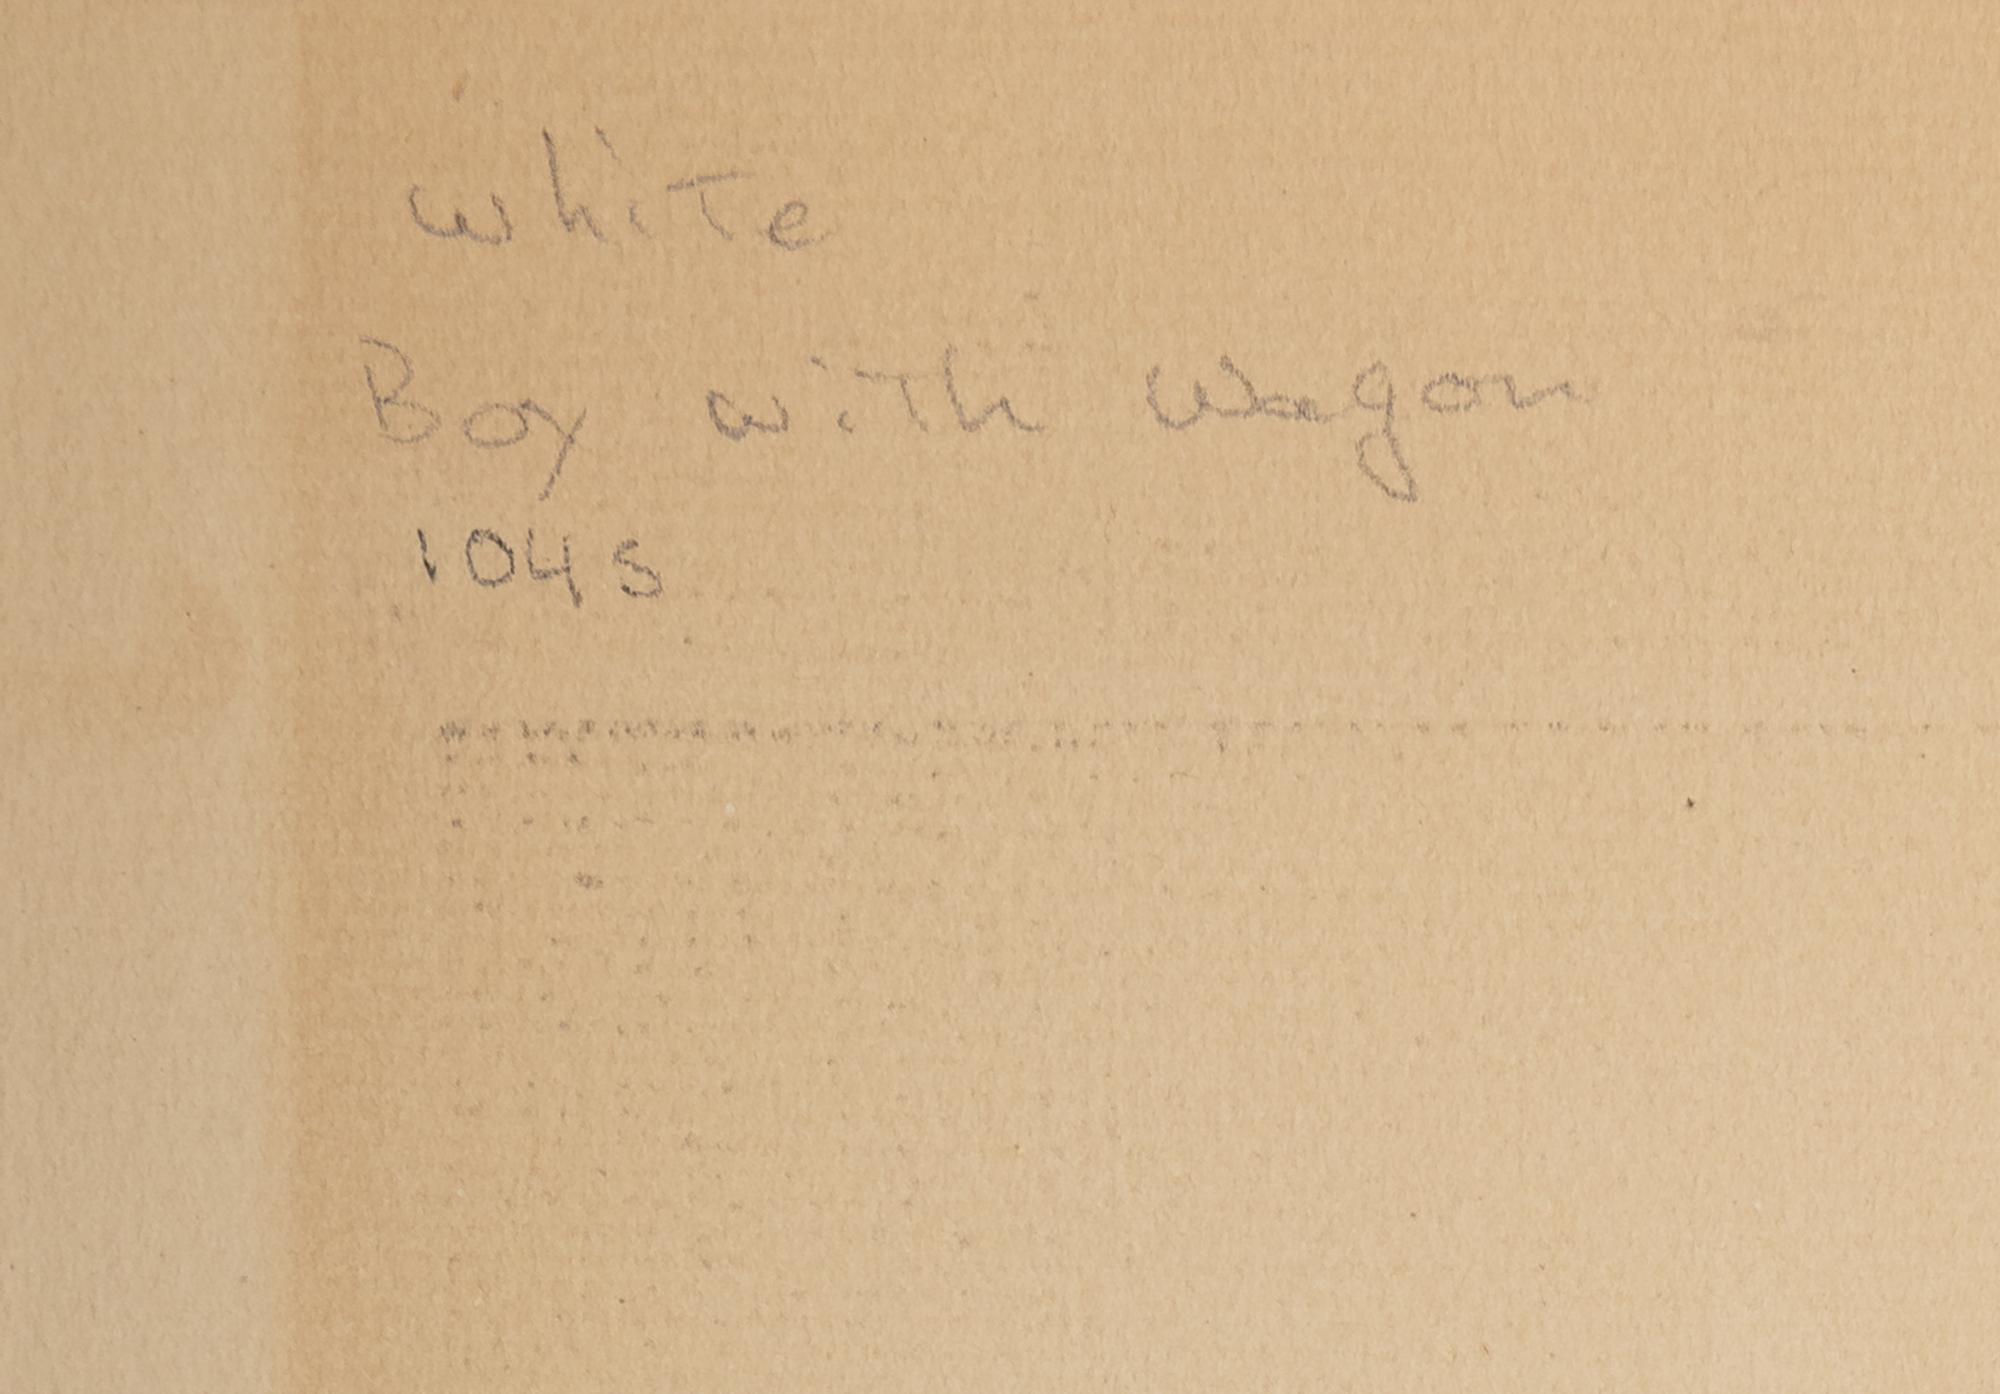 white
Boy with Wagon
104s